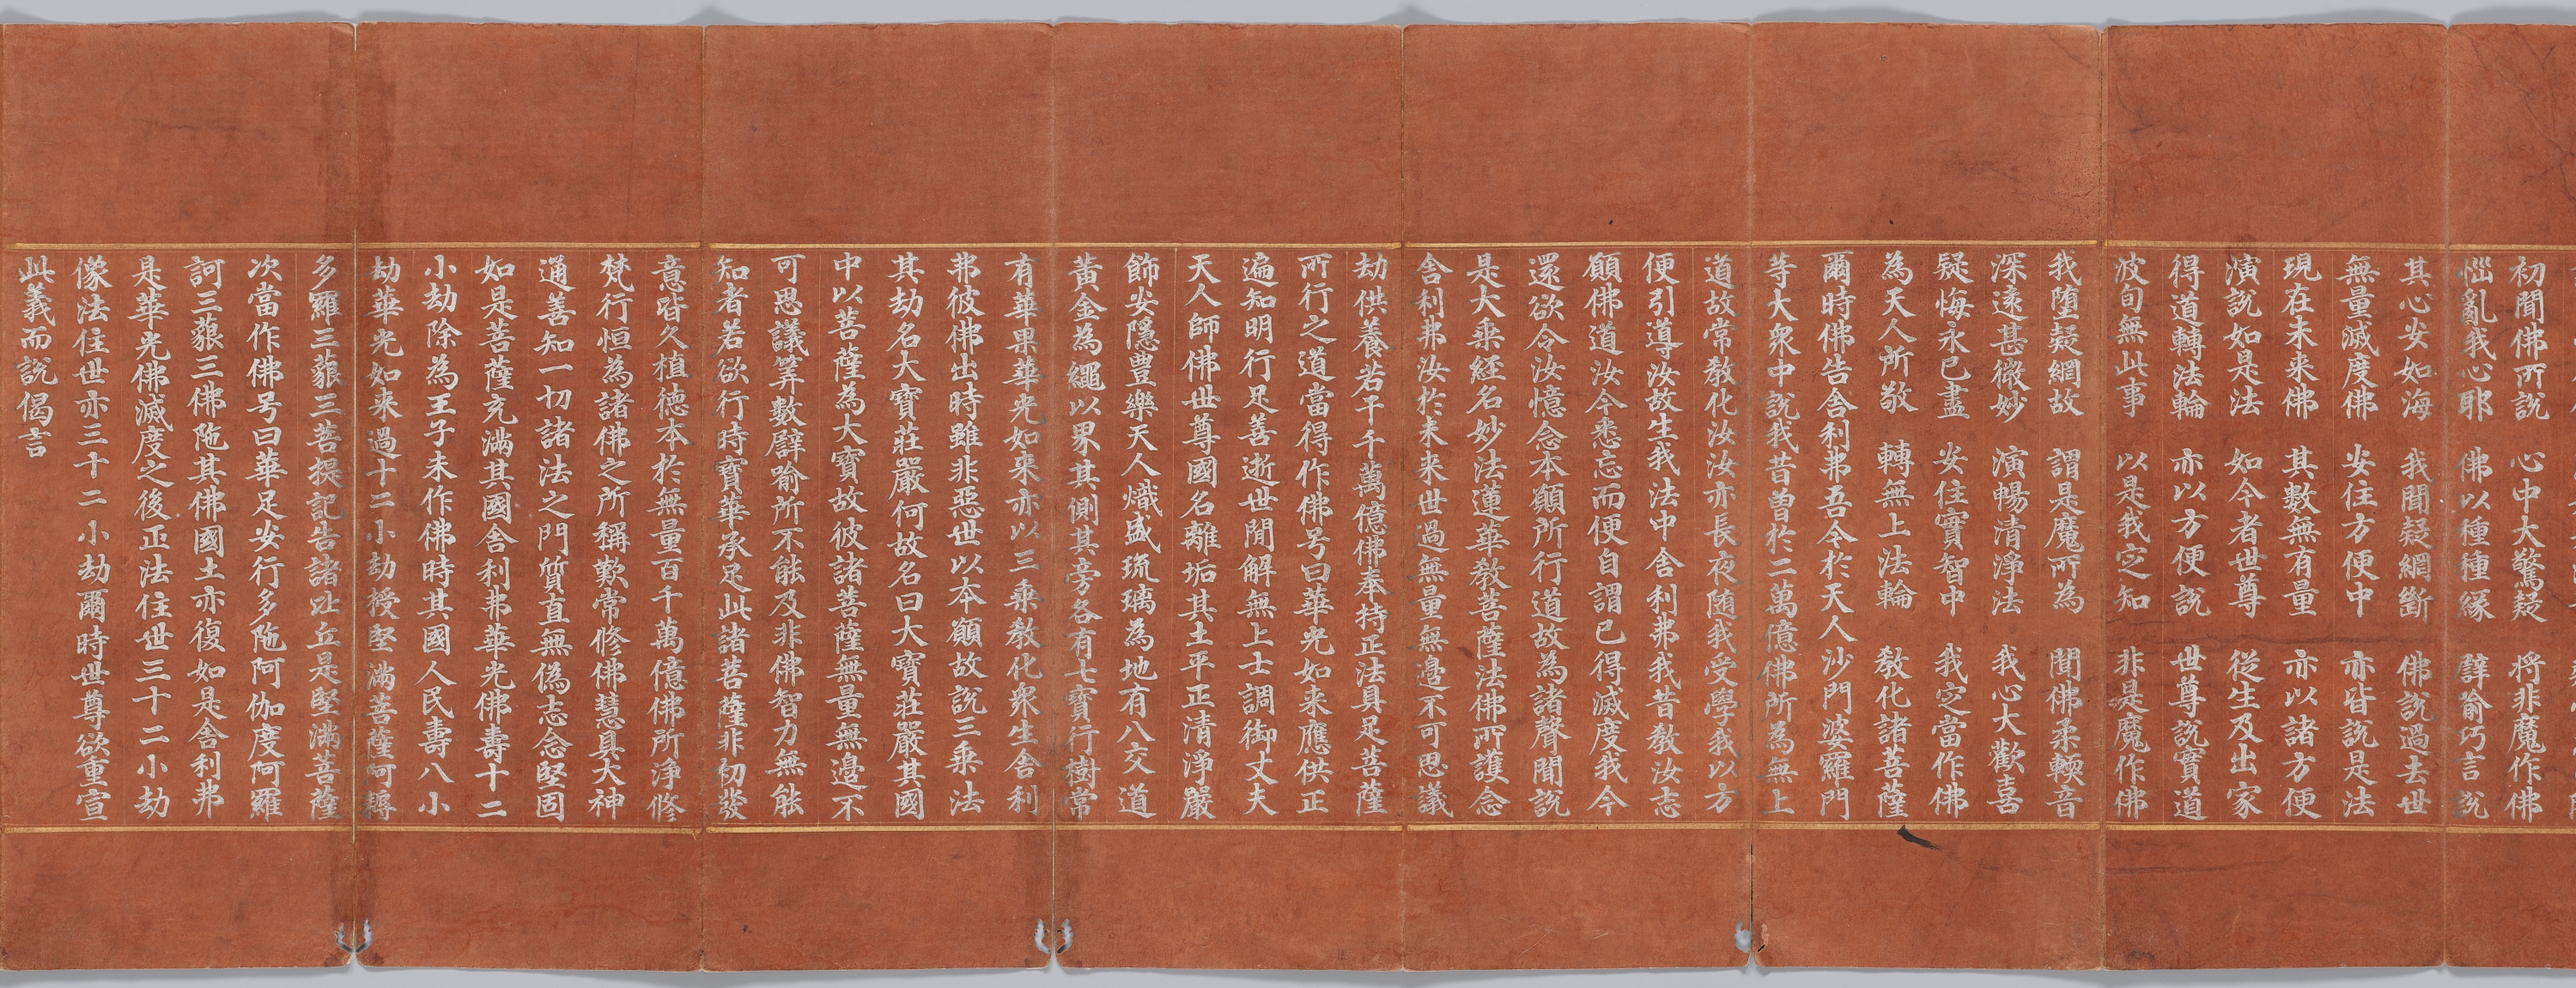 初聞佛所說 心中大驚疑 將非魔作佛
惱亂我心耶 佛以種種緣 譬喻巧言說
其心安如海 我聞疑網斷 佛說過去世
無量滅度佛 安住方便中 亦皆說是法
現在未來佛 其數無有量 亦以諸方便
演說如是法 如今者世尊 從生及出家
得道轉法輪 亦以方便說 世尊說實道
波旬無此事 以是我定知 非是魔作佛
我堕疑網故 謂是魔所為 聞佛柔軟音
深遠甚微妙 演暢清淨法 我心大歡喜
疑悔永已盡 安住實智中 我定當作佛
為天人所敬 轉無上法輪 教化諸菩薩
爾時佛告舍利弗吾今於天人沙門婆羅門
等大衆中說我昔曾於二萬億佛所為無上
道故常教化汝汝亦長夜随我受學我以方
便引導汝故生我法中舍利弗我昔教汝志
願佛道汝今悉忘而便自謂已得滅度我今
還欲令汝憶念本願所行道故為諸聲聞說
是大乘經名妙法蓮華教菩薩法佛所護念
舍利弗汝於未来世過無量無邊不可思議
劫供養若干千萬億佛奉持正法具足菩薩
所行之道當得作佛号曰華光如来應供正
遍知明行足善逝世間解無上士調御丈夫
天人師佛世尊國名離垢其土平正清淨嚴
飾安隱豊樂天人熾盛琉璃為地有八交道
黃金為繩以界其側其旁各有七寶行樹常
有華果華光如来亦以三乘教化衆生舍利
弗彼佛出時雖非惡世以本願故說三乘法
其劫名大寶莊嚴何故名曰大寶莊嚴其國
中以菩薩為大寶故彼諸菩薩無量無邊不
可思議筭數譬喻所不能及非佛智力無能
知者若欲行時寶華承足此諸菩薩非初發
意皆久植德本於無量百千萬億佛所淨修
梵行恒為諸佛之所稱歎常修佛慧具大神
通善知一切諸法之門質直無偽志念堅固
如是菩薩充滿其國舍利弗華光佛壽十二
小劫除為王子未作佛時其國人民壽八小
劫華光如来過十二小劫授堅滿菩薩阿耨
多羅三藐三菩提記告諸比丘是堅滿菩薩
次當作佛号曰華足安行多陁阿伽度阿羅
訶三藐三佛陁其佛國土亦復如是舍利弗
是華光佛滅度之後正法住世三十二小劫
像法住世亦三十二小劫爾時世尊欲重宣
此義而說偈言